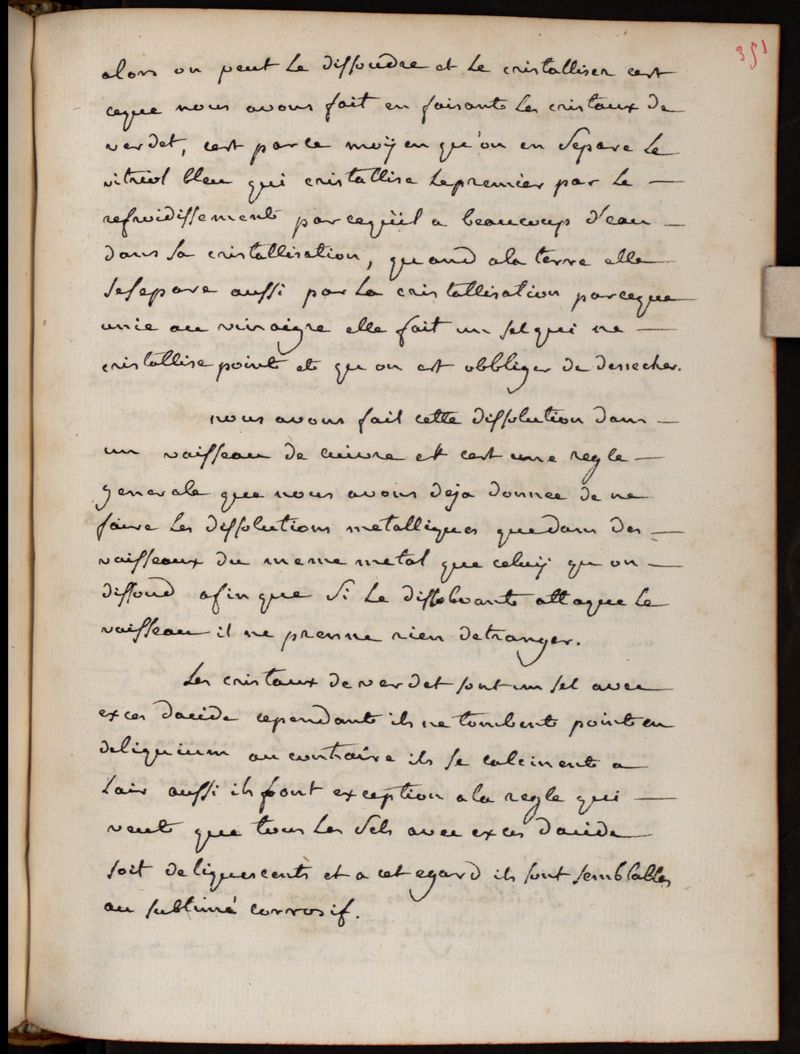 351
alors on peut le dissoudre et le cristalliser cest
ceque nous avons fait en faisant les cristaux de
verdet, cest parce moÿen qu'on en separe le
vitriol bleu qui cristallise lepremier par le —
refroidissement parcequ'il a beaucoup d'eau —
dans sa cristallisation, quand ala terre elle
sesepare aussi par la cristallisation parceque
unie au vinaigre elle fait un sel qui ne —
cristallise point et qu on est obbliger de dessecher.
nous avons fait cette dissolution dans —
un vaisseau de cuivre et cest une regle —
generale que nous avons deja donnee de ne
faire les dissolutions metalliques quedans des —
vaisseaux du meme metal que celuÿ qu on —
dissoud afin que si le dissolvant attaque le
vaisseau il ne prenne rien detranger.
Les cristaux de verdet sont un sel avec
exces dacide cependant ils ne tombent point en
deliquium au contraire ils se calcinent a
lair aussi ils font exception ala regle qui —
veut que tous les sels avec exces dacide
soit deliquescents et a cet egard ils sont semblables
au sublimé corrosif.